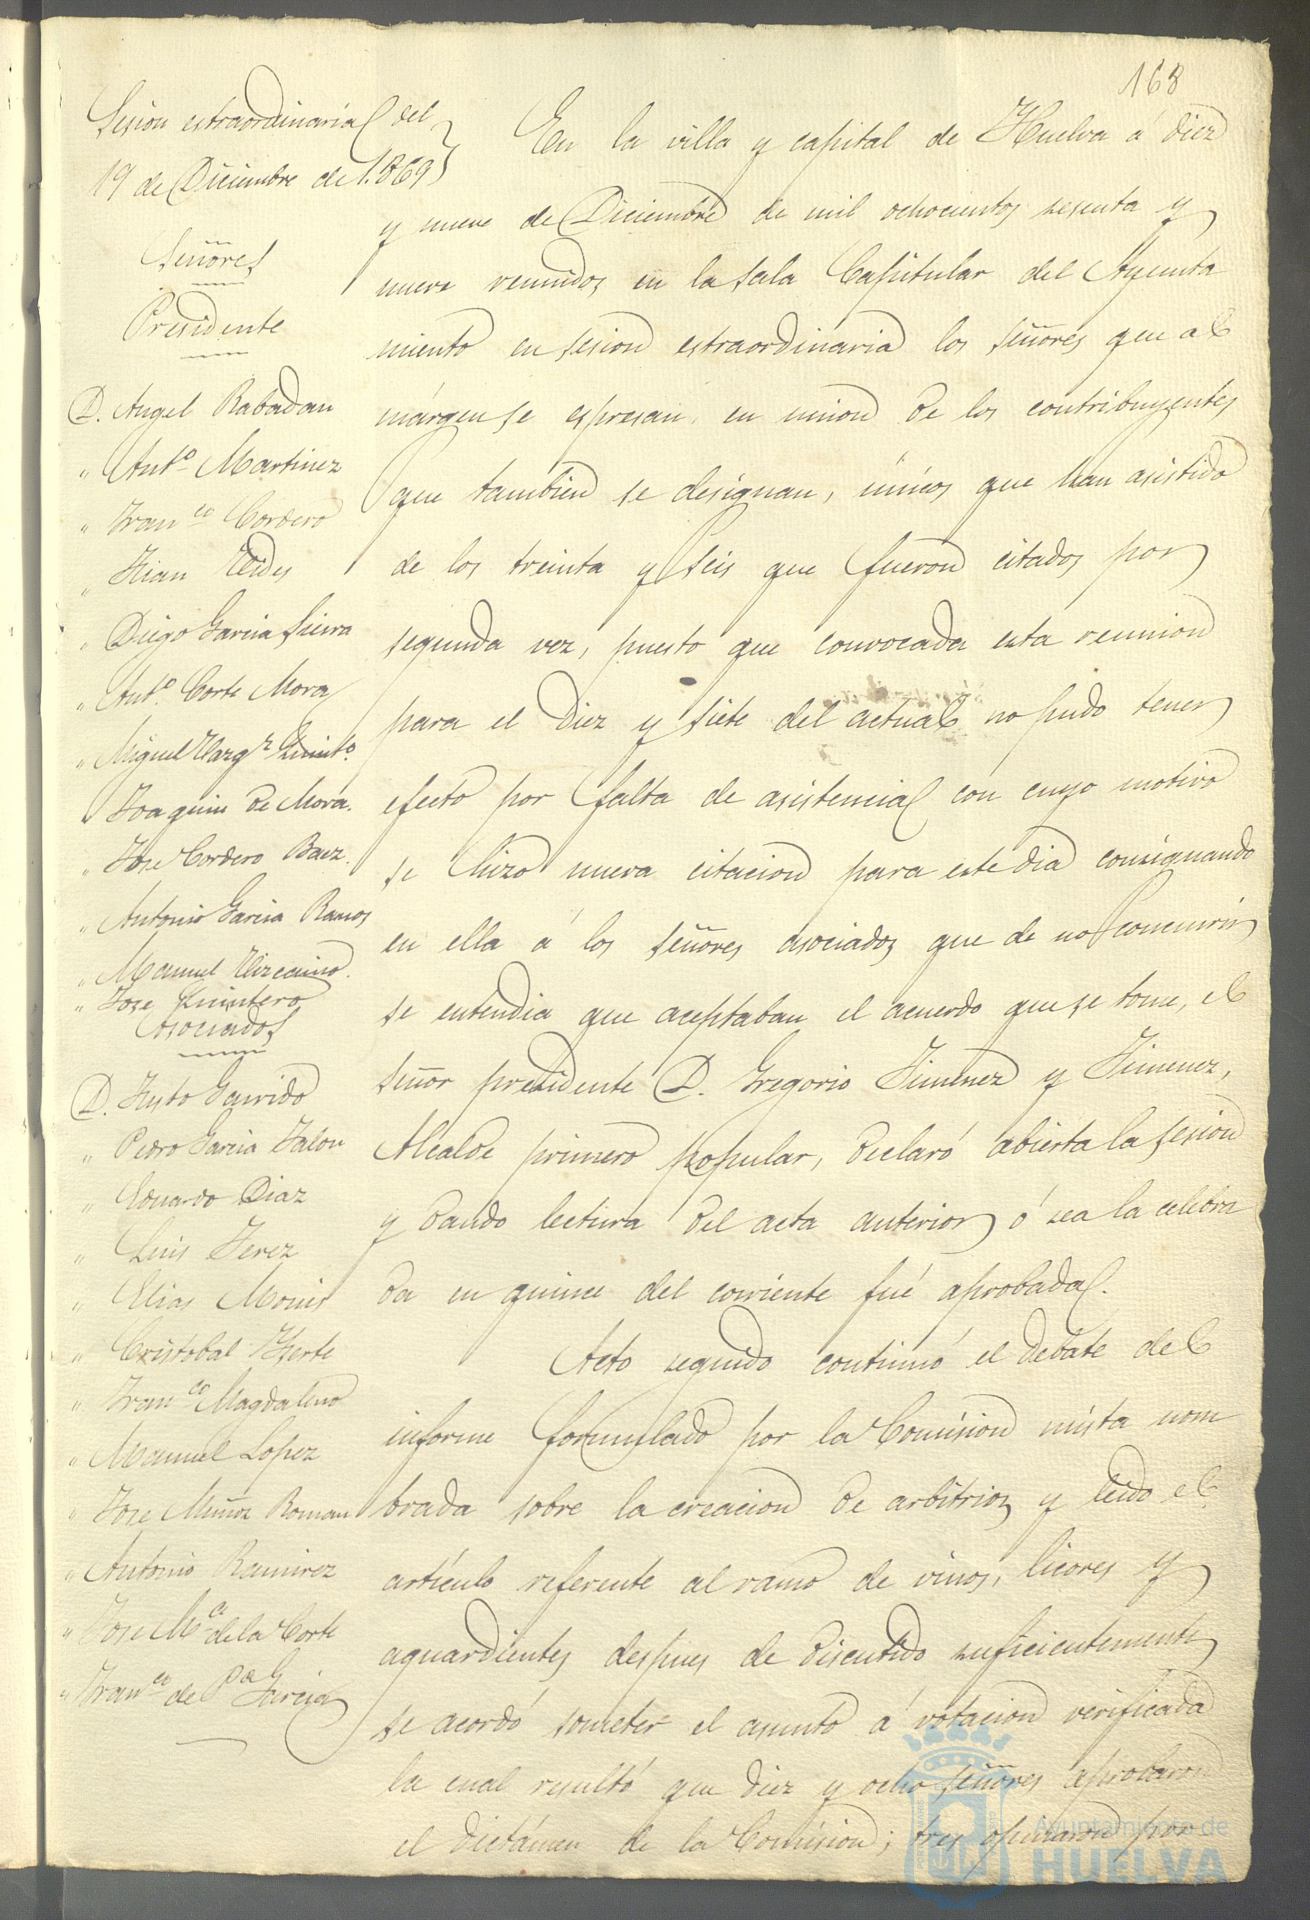 168
Sesion estraordinaria del
19 de Diciembre de 1.869
Señores
Presidente
D. Angel Rabadan
" Antº Martinez
" Franco Cordero
" Diego Garcia Sierra
" Antº Corte Mora
" Miguel
" Joaquin de Mora.
" Jose Cordero Baez.
" Antonio Garcia Ramos
" Manuel Vizcaino.
" Jose Quintero
Asociados
D. Justo Garrido
" Pedro Garcia Jalon
" Eduardo Diaz
" Luis Jerez
" Elias
" Cristobal
" Franco Magdaleno
" Manuel Lopez
" Jose Muñoz Roman
" Antonio Ramirez
" Jose Mª de la Corte
" Franco de Pª Garcia
En la villa y capital de Huelva á diez
y nueve de Diciembre de mil ochocientos sesenta y
nueve reunidos en la sala Capitular del Ayunta
miento en sesion estraordinaria los señores que al
márgen se espresan, en union de los contribuyentes
que tambien se designan, únicos que han asistido
de los treinta y seis que fueron citados por
segunda vez, puesto que convocada esta reunion
para el diez y siete del actual no pudo tener
efecto por falta de asistencia con cuyo motivo
se hizo nueva citacion para este dia consignando
en ella á los señores asociados que de no concurrir
se entendia que aceptaban el acuerdo que se tome, el
señor presidente D. Gregorio Jimenez y Jimenez,
Alcalde primero popular, declaró abierta la sesion
y dando lectura del acta anterior ó sea la celebra
da en quince del corriente fué aprobada.
Acto seguido continuó el debate del
informe formulado por la Comision mista nom
brada sobre la creacion de arbitrios y leido el
artículo referente al ramo de vinos, licores y
aguardientes despues de discutido suficientemente
se acordó someter el asunto á votacion verificada
la cual resultó que diez y ocho señores aprobaron
el dictámen de la Comision; tres opinaron por
Ayuntamiento de
HUELVA